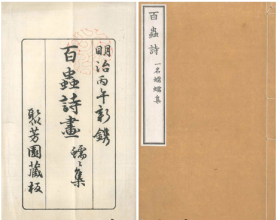 明治丙午新鐫
百蟲詩畫
蠕々集
聚芳園藏板
百蟲詩 一名蠕蠕集